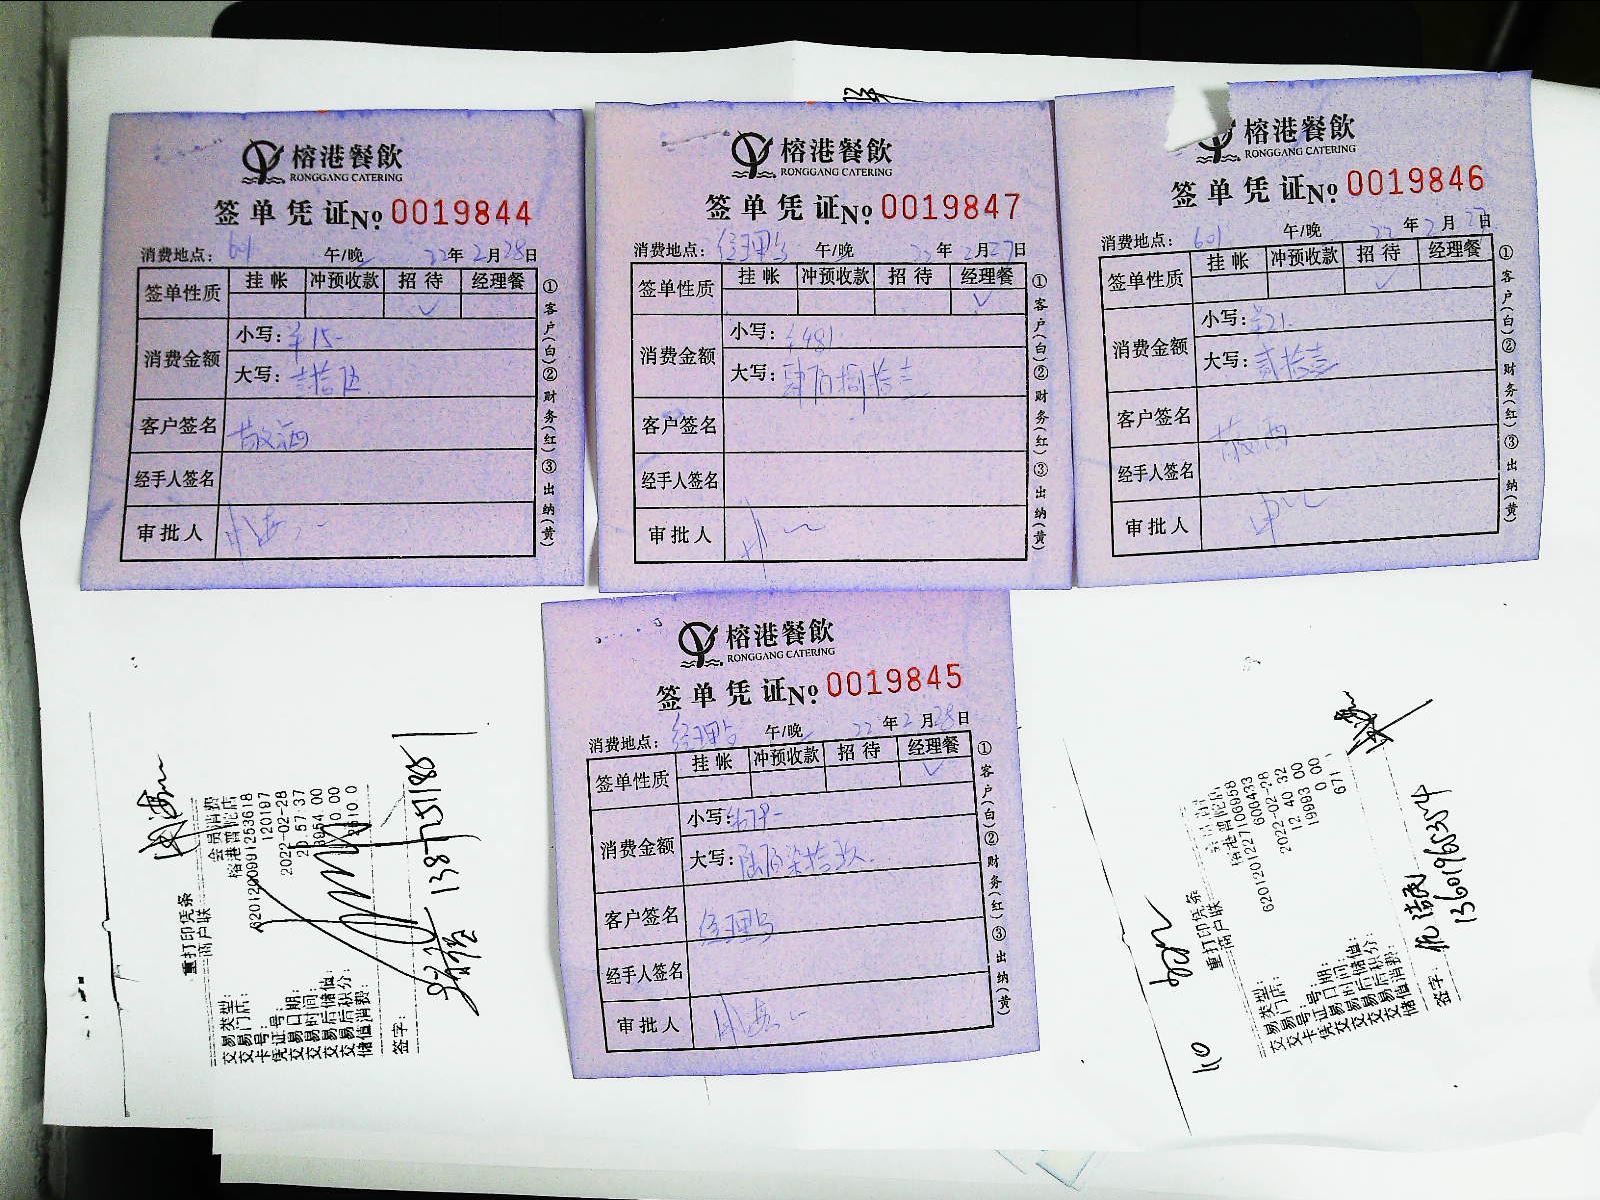 榕港餐飲
RONGGANG CATERING
签单凭证 No. 0019844
消费地点: 601 午/晚 22年2月28日
签单性质 挂帐 冲预收款 招待 经理餐
✓
消费金额
小写: ¥15-
大写: 壹拾伍
客户签名 敬酒
经手人签名
审批人
①客户(白)②财务(红)③出纳(黄)
榕港餐飲
RONGGANG CATERING
签单凭证 No. 0019847
消费地点: 经理 午/晚 22年2月27日
签单性质 挂帐 冲预收款 招待 经理餐
✓
消费金额
小写: ¥481.
大写: 肆佰捌拾壹
客户签名
经手人签名
审批人
①客户(白)②财务(红)③出纳(黄)
榕港餐飲
RONGGANG CATERING
签单凭证 No. 0019846
消费地点: 601 午/晚 22年2月27日
签单性质 挂帐 冲预收款 招待 经理餐
✓
消费金额
小写: ¥21.
大写: 贰拾壹
客户签名 敬酒
经手人签名
审批人
①客户(白)②财务(红)③出纳(黄)
榕港餐飲
RONGGANG CATERING
签单凭证 No. 0019845
消费地点: 经理 午/晚 22年2月28日
签单性质 挂帐 冲预收款 招待 经理餐
✓
消费金额
小写: ¥679-
大写: 陆佰柒拾玖
客户签名 经理
经手人签名
审批人
①客户(白)②财务(红)③出纳(黄)
重打印凭条
商户联
交易类型: 会员消费
交易门店: 榕港普陀店
卡号: 6201200991253618
凭证号: 120197
交易日期: 2022-02-28
交易时间: 20 57 37
交易后储值:
交易后积分:
储值消费:
签字:
重打印凭条
商户联
交易类型:
交易门店: 榕港普陀店
卡号: 6201201227106958
凭证号: 600433
交易日期: 2022-02-28
交易时间: 12 40 32
交易后储值: 19993 00
交易后积分: 0 00
储值消费: 671
签字:
13601965354